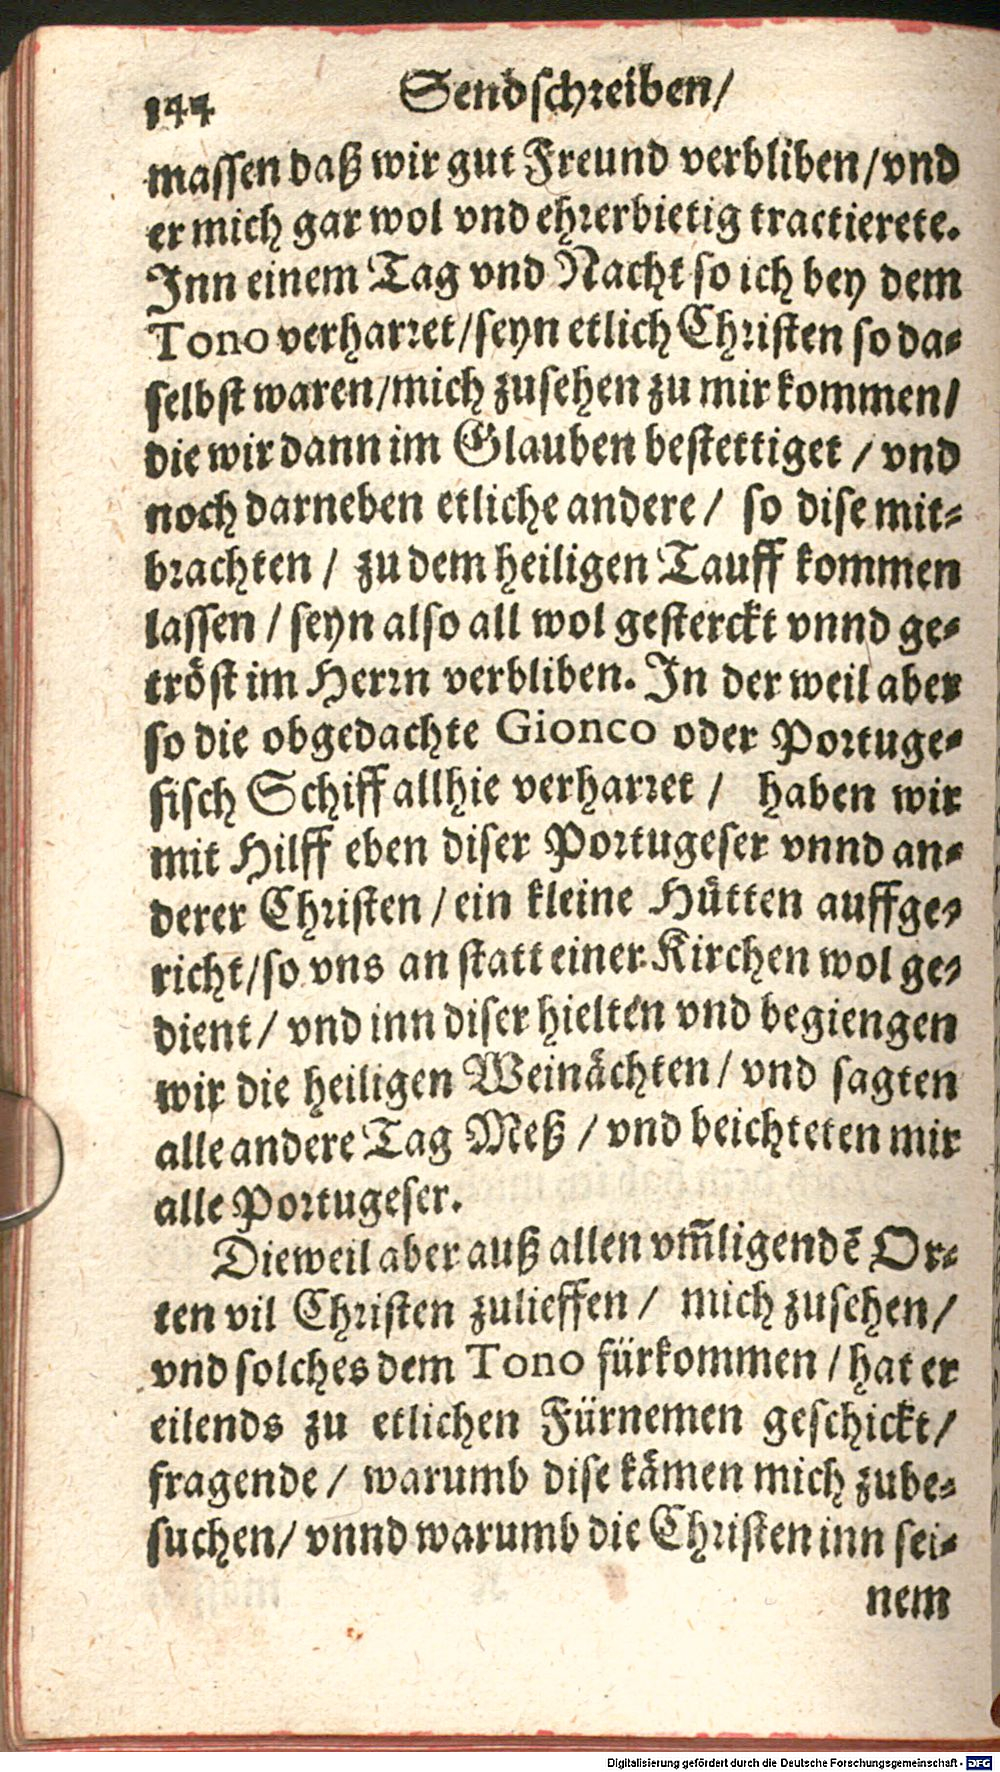 144 Sendschreiben/
massen daß wir gut Freund verbliben/vnd
er mich gar wol vnd ehrerbietig tractierete.
Inn einem Tag vnd Nacht so ich bey dem
Tono verharret/seyn etlich Christen so da-
selbst waren/mich zusehen zu mir kommen/
die wir dann im Glauben bestettiget / vnd
noch darneben etliche andere / so dise mit-
brachten / zu dem heiligen Tauff kommen
lassen / seyn also all wol gesterckt vnnd ge-
tröst im Herrn verbliben. In der weil aber
so die obgedachte Gionco oder Portuge-
sisch Schiff allhie verharret / haben wir
mit Hilff eben diser Portugeser vnnd an-
derer Christen / ein kleine Hütten auffge-
richt/so vns an statt einer Kirchen wol ge-
dient / vnd inn diser hielten vnd begiengen
wir die heiligen Weinächten / vnd sagten
alle andere Tag Meß / vnd beichteten mir
alle Portugeser.
Dieweil aber auß allen vm̃ligendẽ Or-
ten vil Christen zulieffen / mich zusehen /
vnd solches dem Tono fürkommen / hat er
eilends zu etlichen Fürnemen geschickt /
fragende / warumb dise kämen mich zube-
suchen/ vnnd warumb die Christen inn sei-
nem
Digitalisierung gefördert durch die Deutsche Forschungsgemeinschaft - DFG